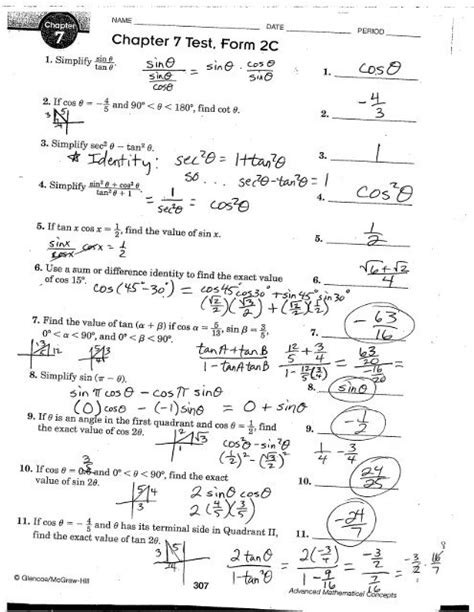 Chapter 7
NAME DATE PERIOD
Chapter 7 Test, Form 2C
1. Simplify sin θ / tan θ.
sinθ / (sinθ / cosθ) = sinθ · cosθ / sinθ
1. cosθ
2. If cos θ = −4/5 and 90° < θ < 180°, find cot θ.
2. −4/3
3. Simplify sec² θ − tan² θ.
* Identity: sec²θ = 1+tan²θ
so ... sec²θ−tan²θ = 1
3. 1
4. Simplify (sin² θ + cos² θ) / (tan² θ + 1)
= 1 / sec²θ = cos²θ
4. cos²θ
5. If tan x cos x = 1/2, find the value of sin x.
sinx / cosx cosx = 1/2
5. 1/2
6. Use a sum or difference identity to find the exact value
of cos 15°.
cos(45°−30°) = cos45°cos30° + sin45°sin30°
(√2/2)(√3/2) + (√2/2)(1/2)
6. (√6+√2)/4
7. Find the value of tan (α + β) if cos α = 5/13, sin β = 3/5,
0° < α < 90°, and 0° < β < 90°.
7. −63/16
13 12 5 3 4
(tanA + tanB) / (1 − tanA tanB)
(12/5 + 3/4) / (1 − 12/5(3/4)) = (63/20) / (−16/20)
8. Simplify sin (π − θ).
8. sinθ
sin π cosθ − cosπ sinθ
(0) cosθ − (−1) sinθ = 0 + sinθ
9. If θ is an angle in the first quadrant and cos θ = 1/2, find
the exact value of cos 2θ.
2 √3 1
cos²θ − sin²θ
(1/2)² − (√3/2)²
1/4 − 3/4
9. −1/2
10. If cos θ = 3/5 and 0° < θ < 90°, find the exact
value of sin 2θ.
5 4 3
2 sinθ cosθ
2 (4/5)(3/5)
10. 24/25
11. If cos θ = −4/5 and θ has its terminal side in Quadrant II,
find the exact value of tan 2θ.
11. −24/7
3 5 4
2 tanθ / (1−tan²θ)
2(−3/4) / (1 − 9/16) = (−3/2) / (7/16) = −3/2 · 16/7 8
© Glencoe/McGraw-Hill
307
Advanced Mathematical Concepts